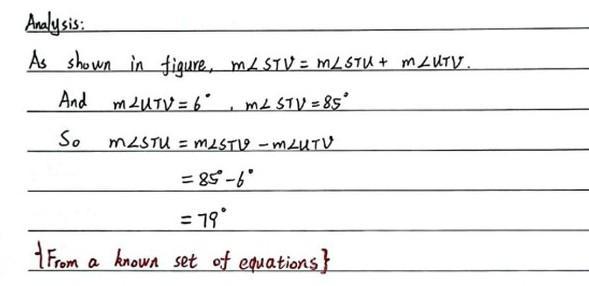 Analysis:
As shown in figure, m∠STV = m∠STU + m∠UTV.
And m∠UTV = 6°, m∠STV = 85°
So m∠STU = m∠STV - m∠UTV
= 85° - 6°
= 79°
{From a known set of equations}